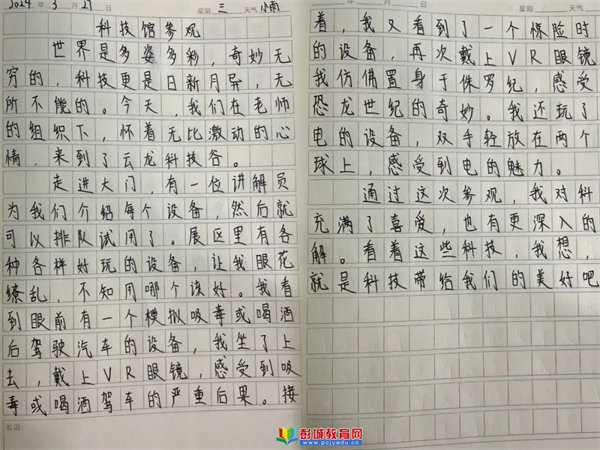 2024年 3月 27 星期 三 天气 小雨
科技馆参观
世界是多姿多秒，奇妙无
穷的，科技更是日新月异，无
所不能的。今天，我们在老师
的组织下，怀着无比激动的心
情，来到了云龙科技谷。
走进大门，有一位讲解员
为我们介绍每个设备，然后就
可以排队试用了。展区里有各
种各样好玩的设备，让我眼花
缭乱，不知用哪个该好。我看
到眼前有一个模拟吸毒或喝酒
后驾驶汽车的设备，我坐了上
去，戴上VR眼镜，感受到吸
毒或喝酒驾车的严重后果。接
批语:
着，我又看到了一个探险时
的设备，再次戴上VR眼镜
我仿佛置身于侏罗纪，感受
恐龙世纪的奇妙。我还玩了
电的设备，双手轻放在两个
球上，感受到电的魅力。
通过这次参观，我对科
充满了喜爱，也有更深入的
解。看着这些科技，我想，
就是科技带给我们的美好吧
彭城教育网
www.pcjyedu.cn